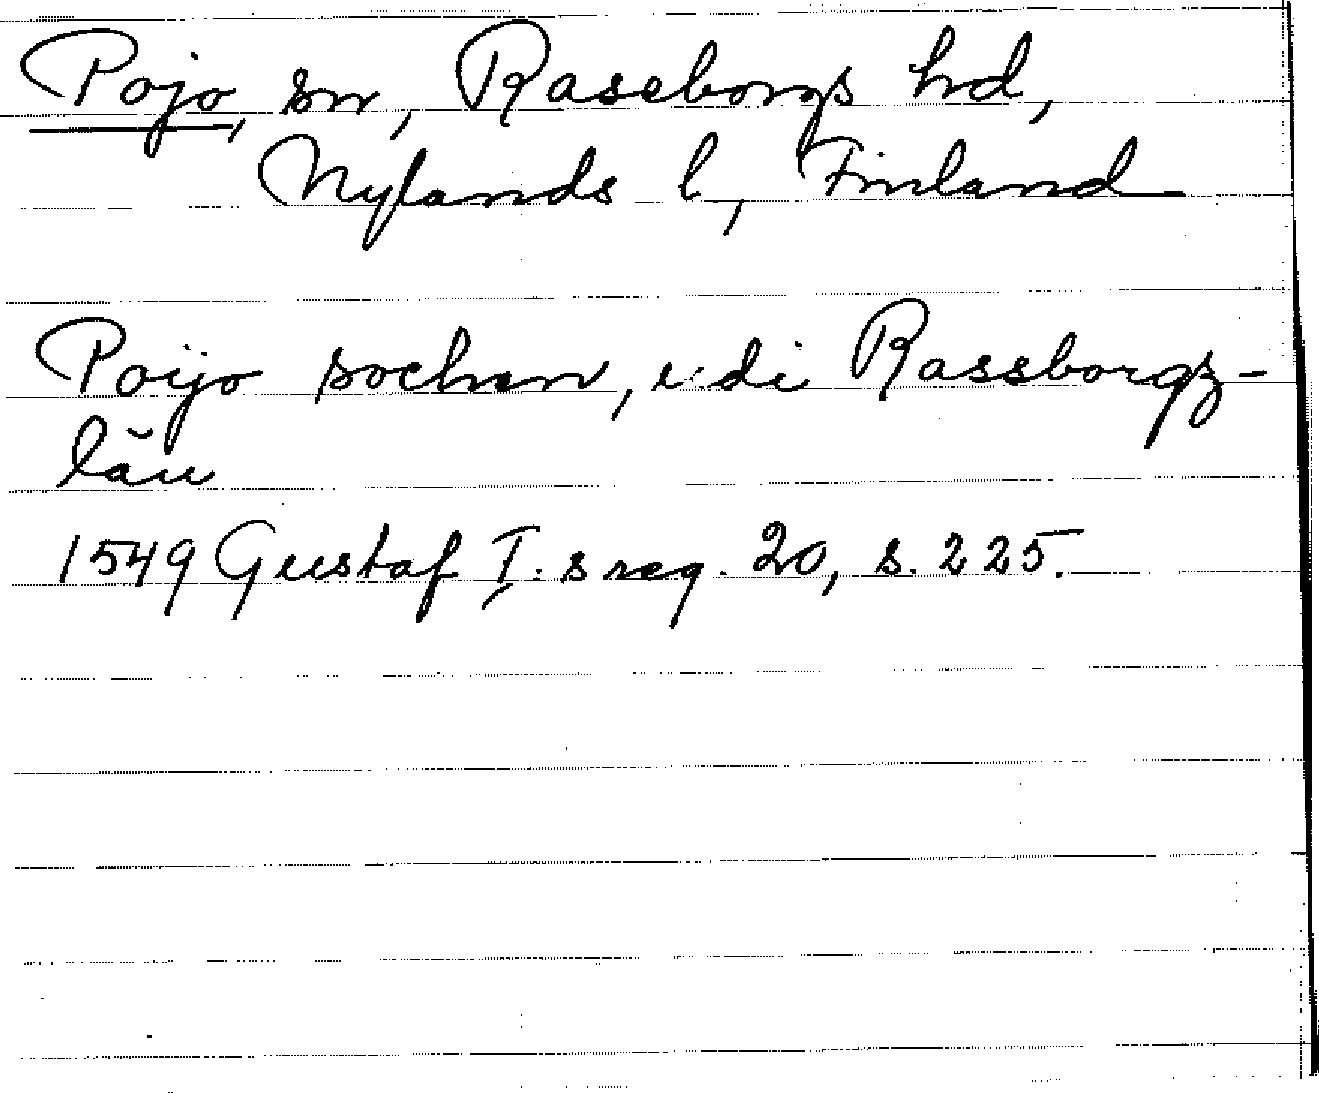 Pojo, sn, Raseborgs hd,
Nylands l, Finland
Poijo sochen, udi Rassborgz-
län
1549 Gustaf I:s reg. 20, s. 225.